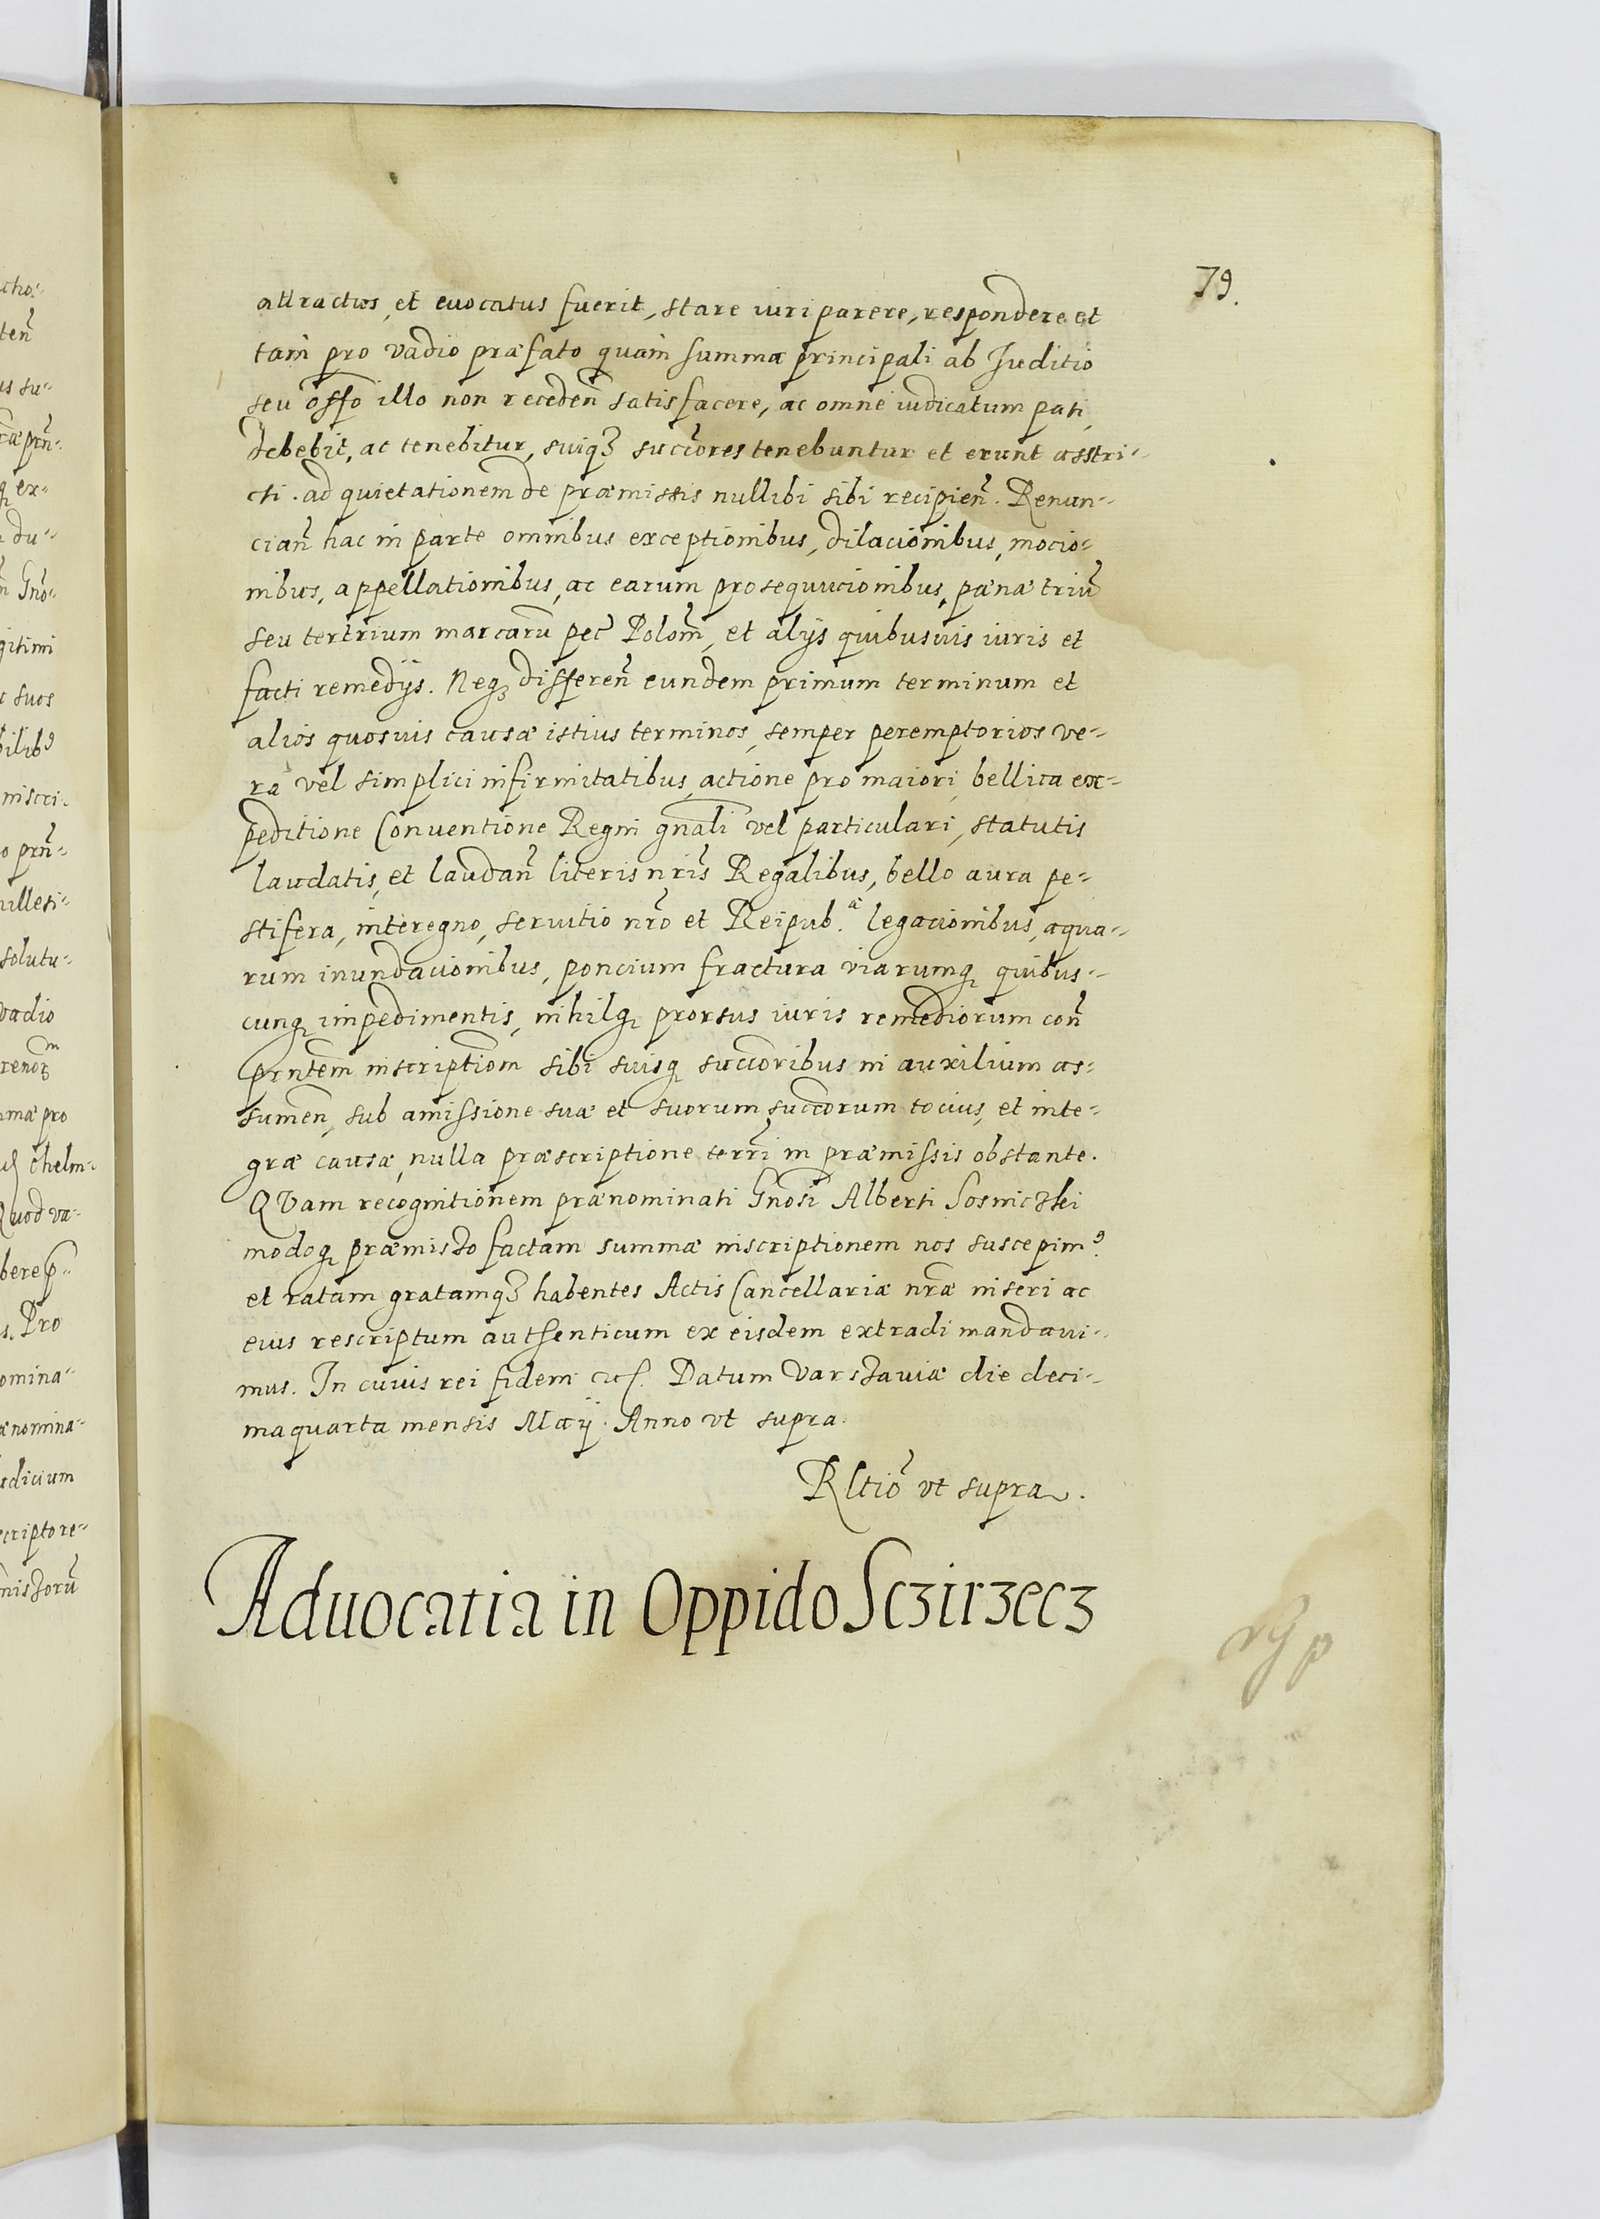 79.
attractus, et euocatus fuerit, stare iuri parere, respondere et
tam pro vadio præfato quam summa principali ab Iuditio
seu offo illo non receden̄ satisfacere, ac omne iudicatum pati
debebit, ac tenebitur, suiqȝ succores tenebuntur et erunt asstri-
cti. ad quietationem de præmissis nullibi sibi recipien̄. Renun-
cian̄ hac in parte omnibus exceptionibus, dilacionibus, mocio-
nibus, appellationibus, ac earum prosequucionibus, pænæ triū
seu tertrium marcarū pec̄ Polom̄, et alijs quibusuis iuris et
facti remedijs. Neqȝ differen̄ eundem primum terminum et
alios quosuis causæ istius terminos, semper peremptorios ve-
ra vel simplici infirmitatibus, actione pro maiori, bellica ex-
peditione Conuentione Regni gnāli vel particulari, statutis
laudatis, et laudan̄ literis nrīs Regalibus, bello aura pe-
stifera, interegno, seruitio nrō et Reipub.ᵃᵉ legacionibus, aqua-
rum inundacionibus, poncium fractura viarumqꝫ quibus-
cunqꝫ impedimentis, nihilqꝫ prorsus iuris remediorum con̄
prn̄tem inscriptiom̄ sibi suisqꝫ succōribus in auxilium as-
sumen̄, sub amissione suæ et suorum succōrum tocius, et inte-
græ causæ, nulla præscriptione terrī in præmissis obstante.
QVam recognitionem prænominati Gn̄osi Alberti Sosniczki
modoqꝫ præmisso factam summæ inscriptionem nos suscepimꝰ.
et ratam gratamqȝ habentes Actis Cancellariæ nrǣ inseri ac
eius rescriptum authenticum ex eisdem extradi mandaui-
mus. In cuius rei fidem etc. Datum Varszauiæ die deci-
maquarta mensis Maij. Anno vt supra.
Rltiō vt supra.
Aduocatia in Oppido Sczirzecz